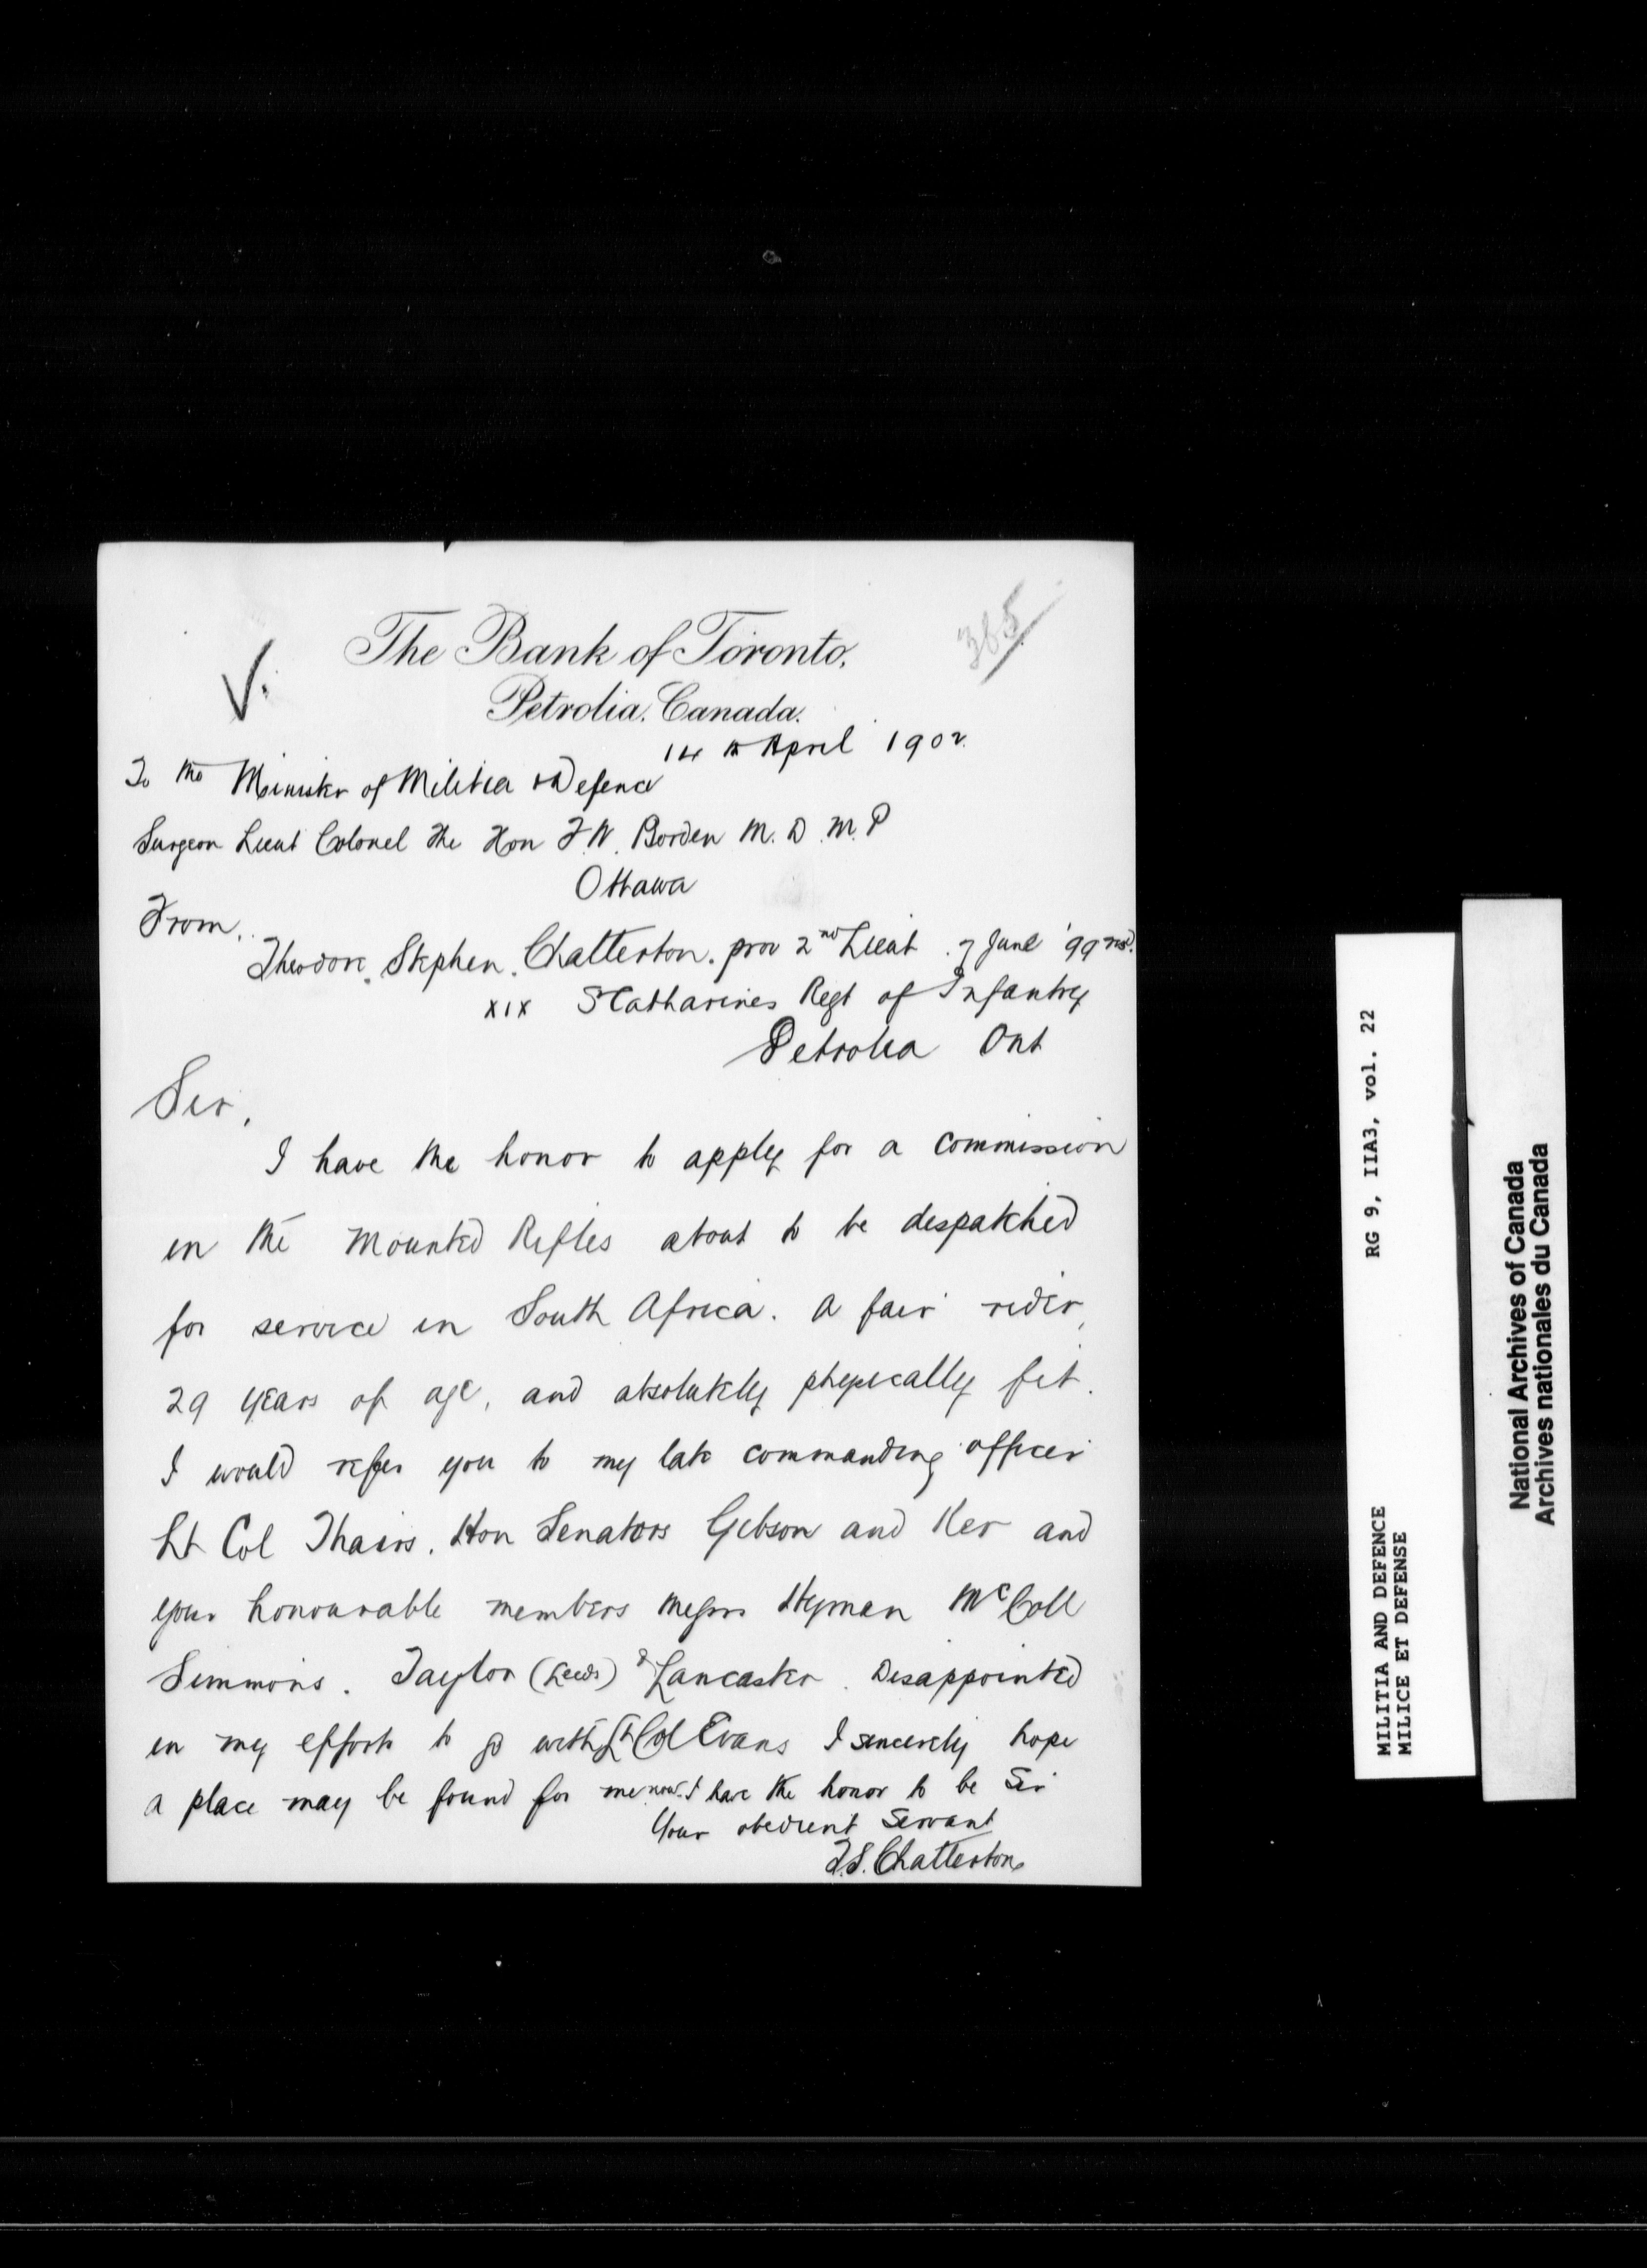 The Bank of Toronto.
Petrolia. Canada.
365
14th April 1902.
To the Minister of Militia & Defence
Surgeon Lieut Colonel The Hon F. W. Borden M. D. M. P
Ottawa
From.
Theodore. Stephen. Chatterton. prov 2nd Lieut. 7 June '99
XIX St Catharines Regt of Infantry
Petrolia Ont
Sir,
I have the honor to apply for a commission
in the Mounted Rifles about to be despatched
for service in South Africa. A fair rider,
29 years of age, and absolutely physically fit.
I would refer you to my late commanding officer
Lt Col Thairs. Hon Senators Gibson and Ker and
your honourable members messrs Hyman McColl
Simmons. Taylor (Leeds) & Lancaster. Disappointed
in my efforts to go with Lt Col Evans I sincerely hope
a place may be found for me now. I have the honor to be Sir
Your obedient Servant
T.S. Chatterton.
RG 9, IIA3, vol. 22
MILITIA AND DEFENCE
MILICE ET DEFENSE
National Archives of Canada
Archives nationales du Canada